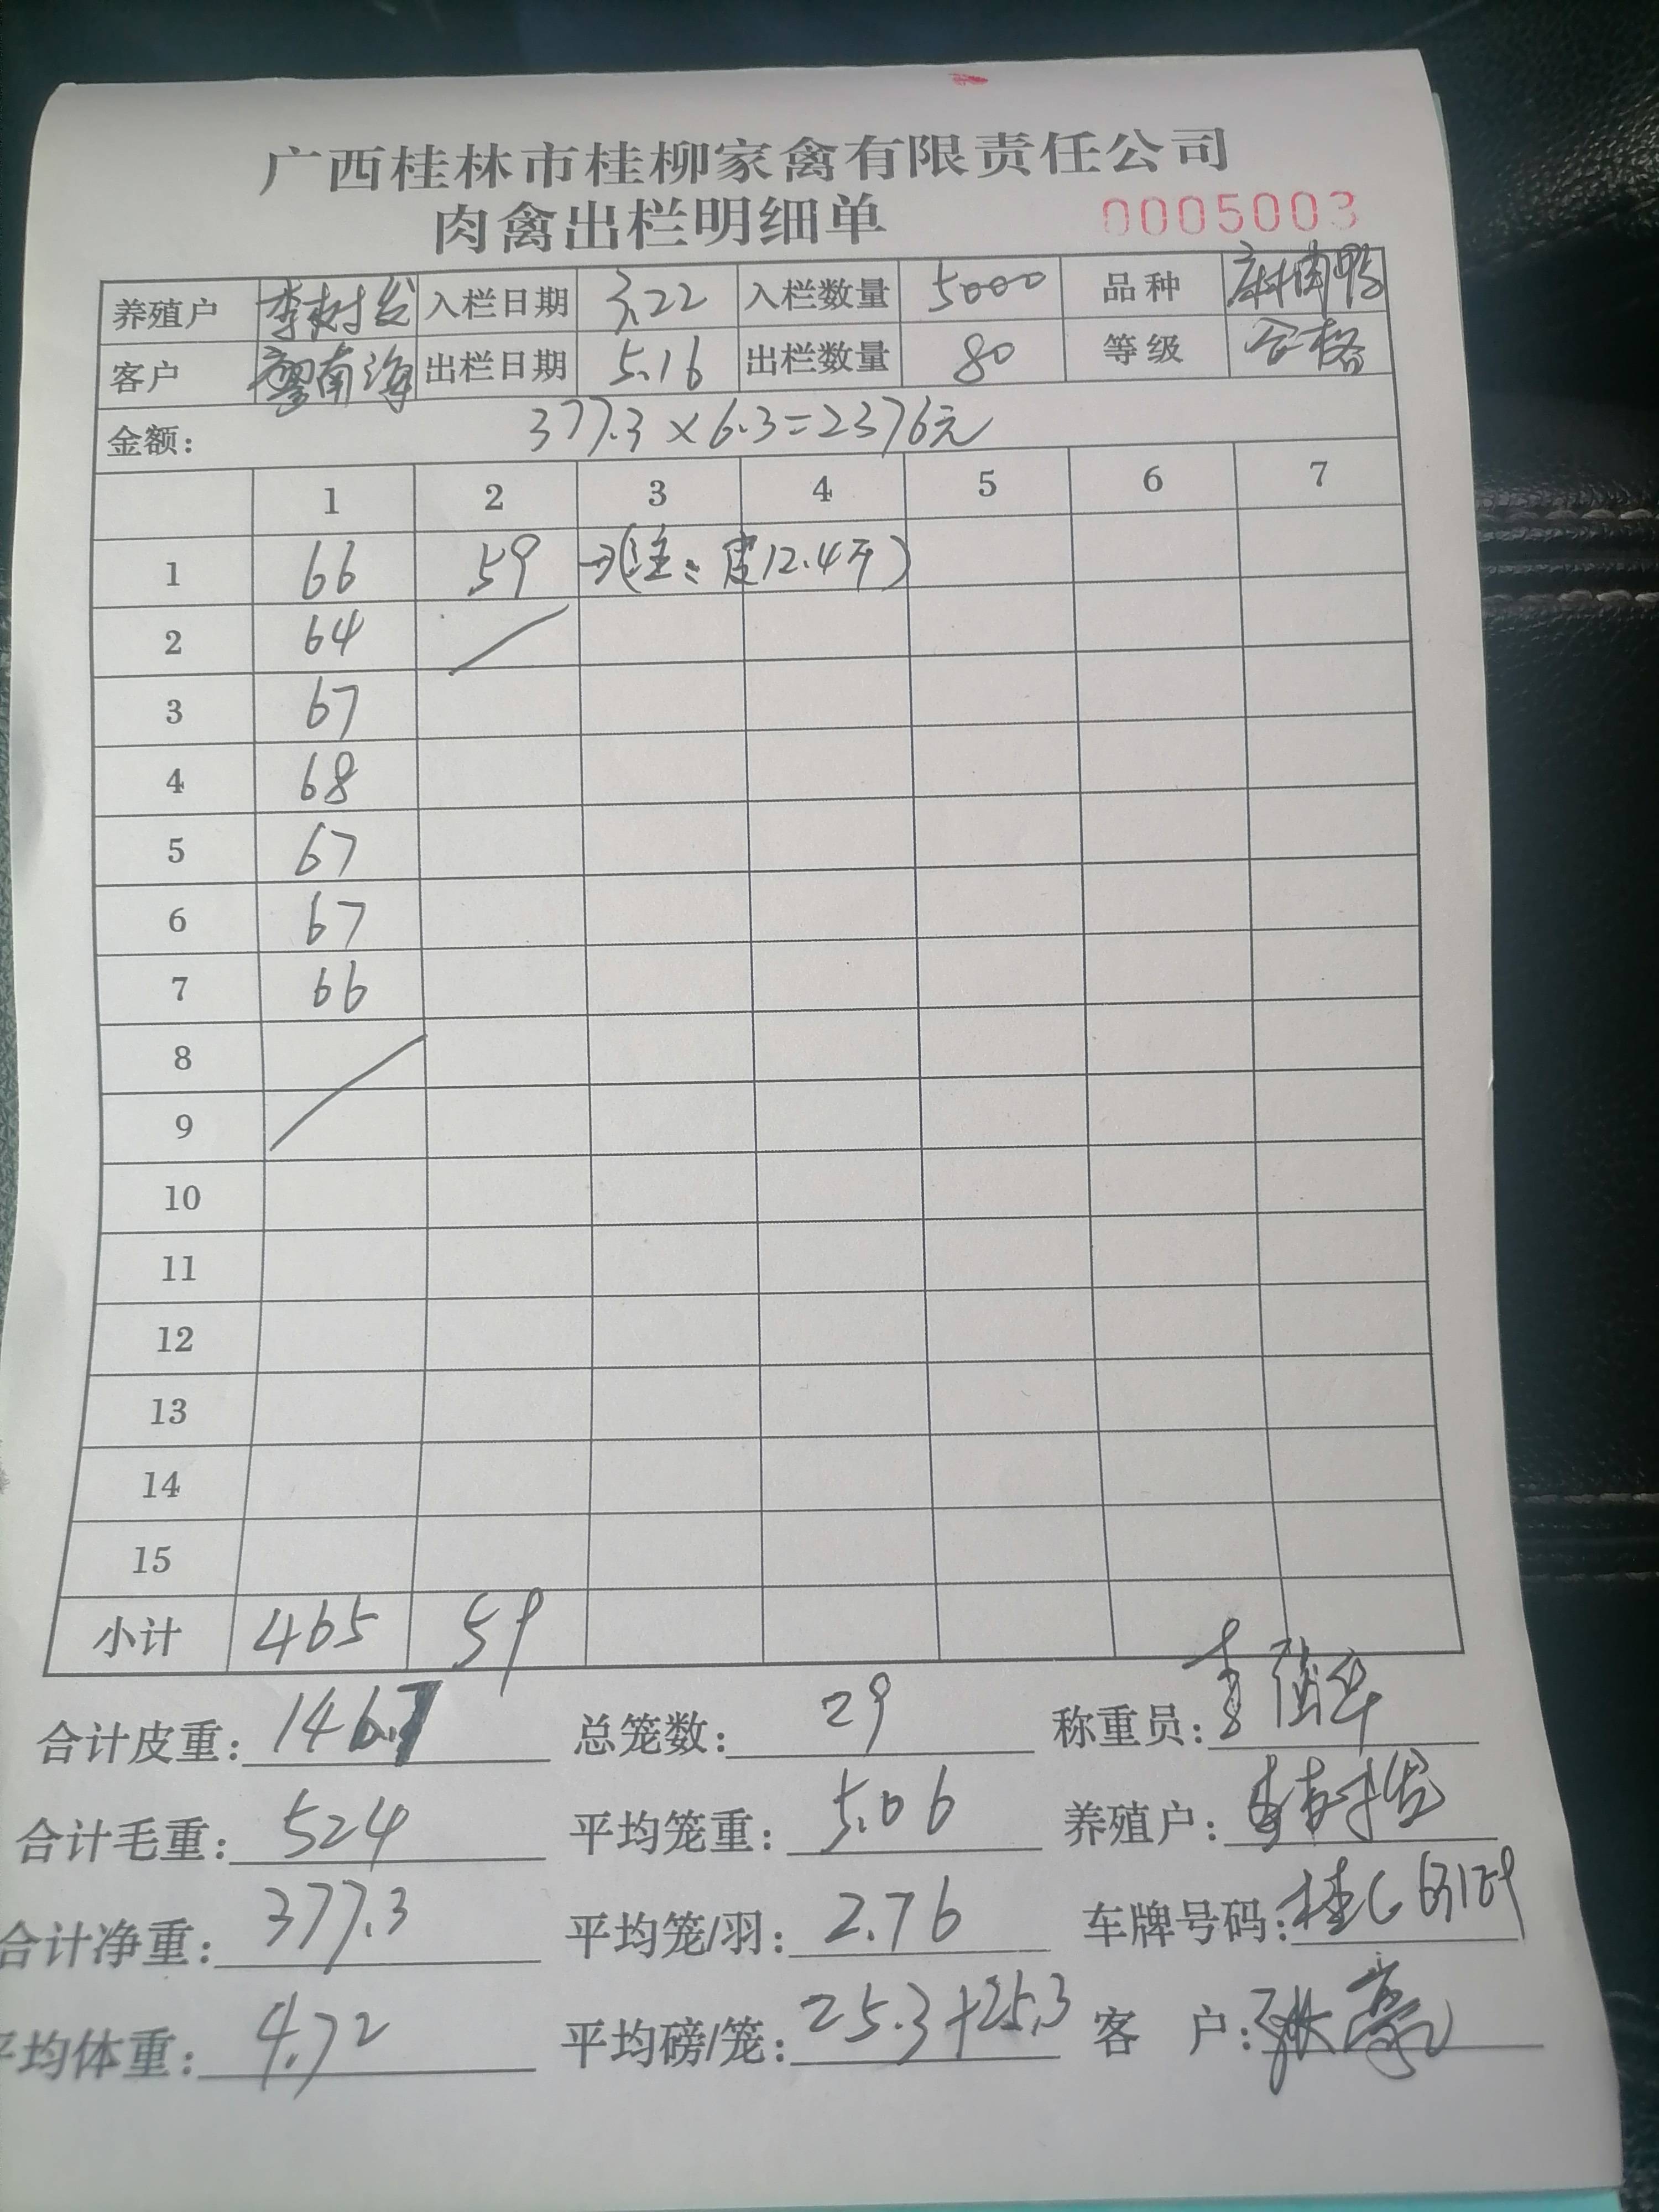 广西桂林市桂柳家禽有限责任公司
肉禽出栏明细单 0005003
养殖户 李树发 入栏日期 3.22 入栏数量 5000 品种 麻肉鸭
客户 廖南海 出栏日期 5.16 出栏数量 80 等级 合格
金额: 377.3×6.3=2376元
1 2 3 4 5 6 7
1 66 59 →(注:皮12.4斤)
2 64
3 67
4 68
5 67
6 67
7 66
8
9
10
11
12
13
14
15
小计 465 59
合计皮重: 146.7 总笼数: 29 称重员: 李
合计毛重: 524 平均笼重: 5.06 养殖户: 李树发
合计净重: 377.3 平均笼/羽: 2.76 车牌号码: 桂C
平均体重: 4.72 平均磅/笼: 25.3+25.3 客 户: 张豪